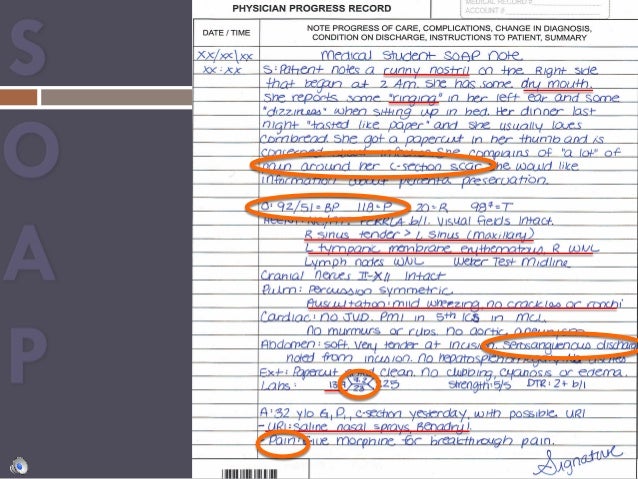 S
O
A
P
PHYSICIAN PROGRESS RECORD
MEDICAL RECORD #
ACCOUNT #
DATE / TIME
NOTE PROGRESS OF CARE, COMPLICATIONS, CHANGE IN DIAGNOSIS,
CONDITION ON DISCHARGE, INSTRUCTIONS TO PATIENT, SUMMARY
XX/XX\XX Medical Student SOAP Note.
XX:XX S: Patient notes a runny nostril on the Right side
that began at 2 Am. She has some dry mouth.
She reports some "ringing" in her left ear and some
"dizziness" when sitting up in bed. Her dinner last
night "tasted like paper" and she usually loves
cornbread. She got a papercut in her thumb and is
concerned about She complains of "a lot" of
pain around her c-section scar. She would like
information about preservation.
O: 92/51=BP 118=P 20=R 98⁹=T
PERRLA b/l. Visual Fields Intact.
R sinus tender > L sinus (maxillary)
L tympanic membrane erythematous, R WNL
Lymph nodes WNL Weber Test Midline
Cranial Nerves II-XII Intact
Pulm: Percussion symmetric
Auscultation: mild wheezing, no crackles or ronchi
Cardiac: NO JVD. PMI in 5th ICS in MCL.
No murmurs or rubs. No aortic
Abdomen: soft. Very tender at incision. Serosanguenous discharge
noted from incision. No
Ext: Papercut clean. No clubbing, cyanosis or edema.
Labs: 125 Strength: 5/5 DTR: 2+ b/l
A: 32 y/o G₁P₁ c-section yesterday, with possible URI
- URI: saline nasal sprays, Benadryl
- Pain: Give morphine for breakthrough pain.
Signature